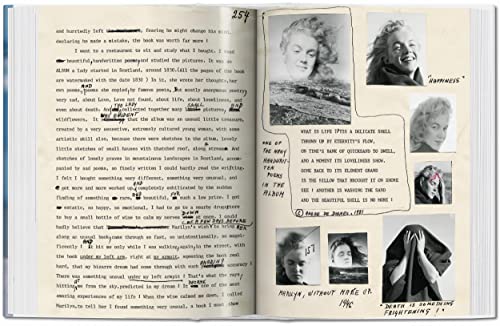 254
and hurriedly left
fearing he might change his mind,
declaring he made a mistake, the book was worth far more !
I went to a restaurant to sit and study what I bought. I read
beautiful, handwritten poems and studied the pictures. It was an
ALBUM a lady started in Scotland, around 1830. (All the pages of the book
were watermarked with the date 1830.) In it, she wrote her thoughts, her
AND
own poems, poems she copied, by famous poets, but mostly anonymous poetry
very sad, about Love, Love not found, about life, about loneliness, and
even about death. And
THE LADY
collected together many
SMALL
pictures,
AND
wildflowers. It
WAS EVIDENT
that the ALBUM was an unusual little treasure,
created by a very sensitive, extremely cultured young woman, with some
artistic skill also, because there were sketches in the album, lovely
little sketches of small houses with thatched roof, along streams. And
sketches of lonely graves in mountainous landscapes in Scotland, accom-
panied by sad poems, so finely written I could hardly read the writing.
I felt I bought something very unusual, something very sensual, and I
got more and more worked up,
AND
completely enthralled by the sudden
finding of something so rare,
AND
beautiful, for such a low price. I got
so estatic, so happy, so emotional, I had to go to a nearby drugstore
to buy a small bottle of wine to calm my nerves
DOWN
I could
badly believe that
Marilyn's wish to bring her
A FEW DAYS BEFORE
along an unusual book came through so fast, so unintentionally, so magni-
ficently ! It hit me only while I was walking again in the street, with
the book under my left arm, right at my armpit, squeezing the book real
hard, that my bizarre dream had some through with such
AMAZING
accuracy!
There was something unusual under my left armpit ! That's what the very
bitter me from the sky, predicted in my dream ! It was one of the most
amazing experiences of my life ! When the wine calmed me down, I called
BECAME
Marilyn, to tell her I found something unusual for her. She
ONE
OF THE
MANY
HANDWRIT-
TEN
POEMS
IN THE
ALBUM
WHAT IS LIFE ? 'TIS A DELICATE SHELL
THROWN UP BY ETERNITY'S FLOW,
ON TIME'S BANK OF QUICKSAND TO DWELL,
AND A MOMENT ITS LOVELINESS SHOW.
GIVE BACK TO ITS ELEMENT GRAND
IS THE BILLOW THAT BROUGHT IT ON SHORE
SEE ! ANOTHER IS WASHING THE SAND
AND THE BEAUTIFUL SHELL IS NO MORE !
© ANDRE DE DIENES, 1951
"HAPPINESS"
157
MARILYN, WITHOUT MAKE UP.
1946
"DEATH IS SOMETHING
FRIGHTENING !"